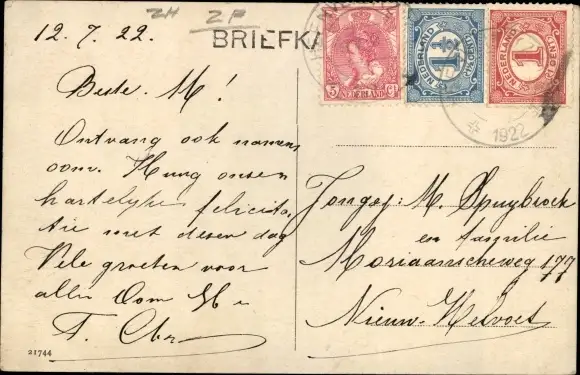 ZH ZP
12.7.22.
BRIEFKA
5 NEDERLAND Ct
NEDERLAND 1½
NEDERLAND 1
1922
Beste M!
Ontvang ook namens
oom. Huug onsen
hartelijke felicita,
tie met desen dag
Vele groeten voor
allen Oom H en
T.
Jongej: M. Spuybroek
en familie
Moriaanscheweg 177
Nieuw-Helvoet
21744